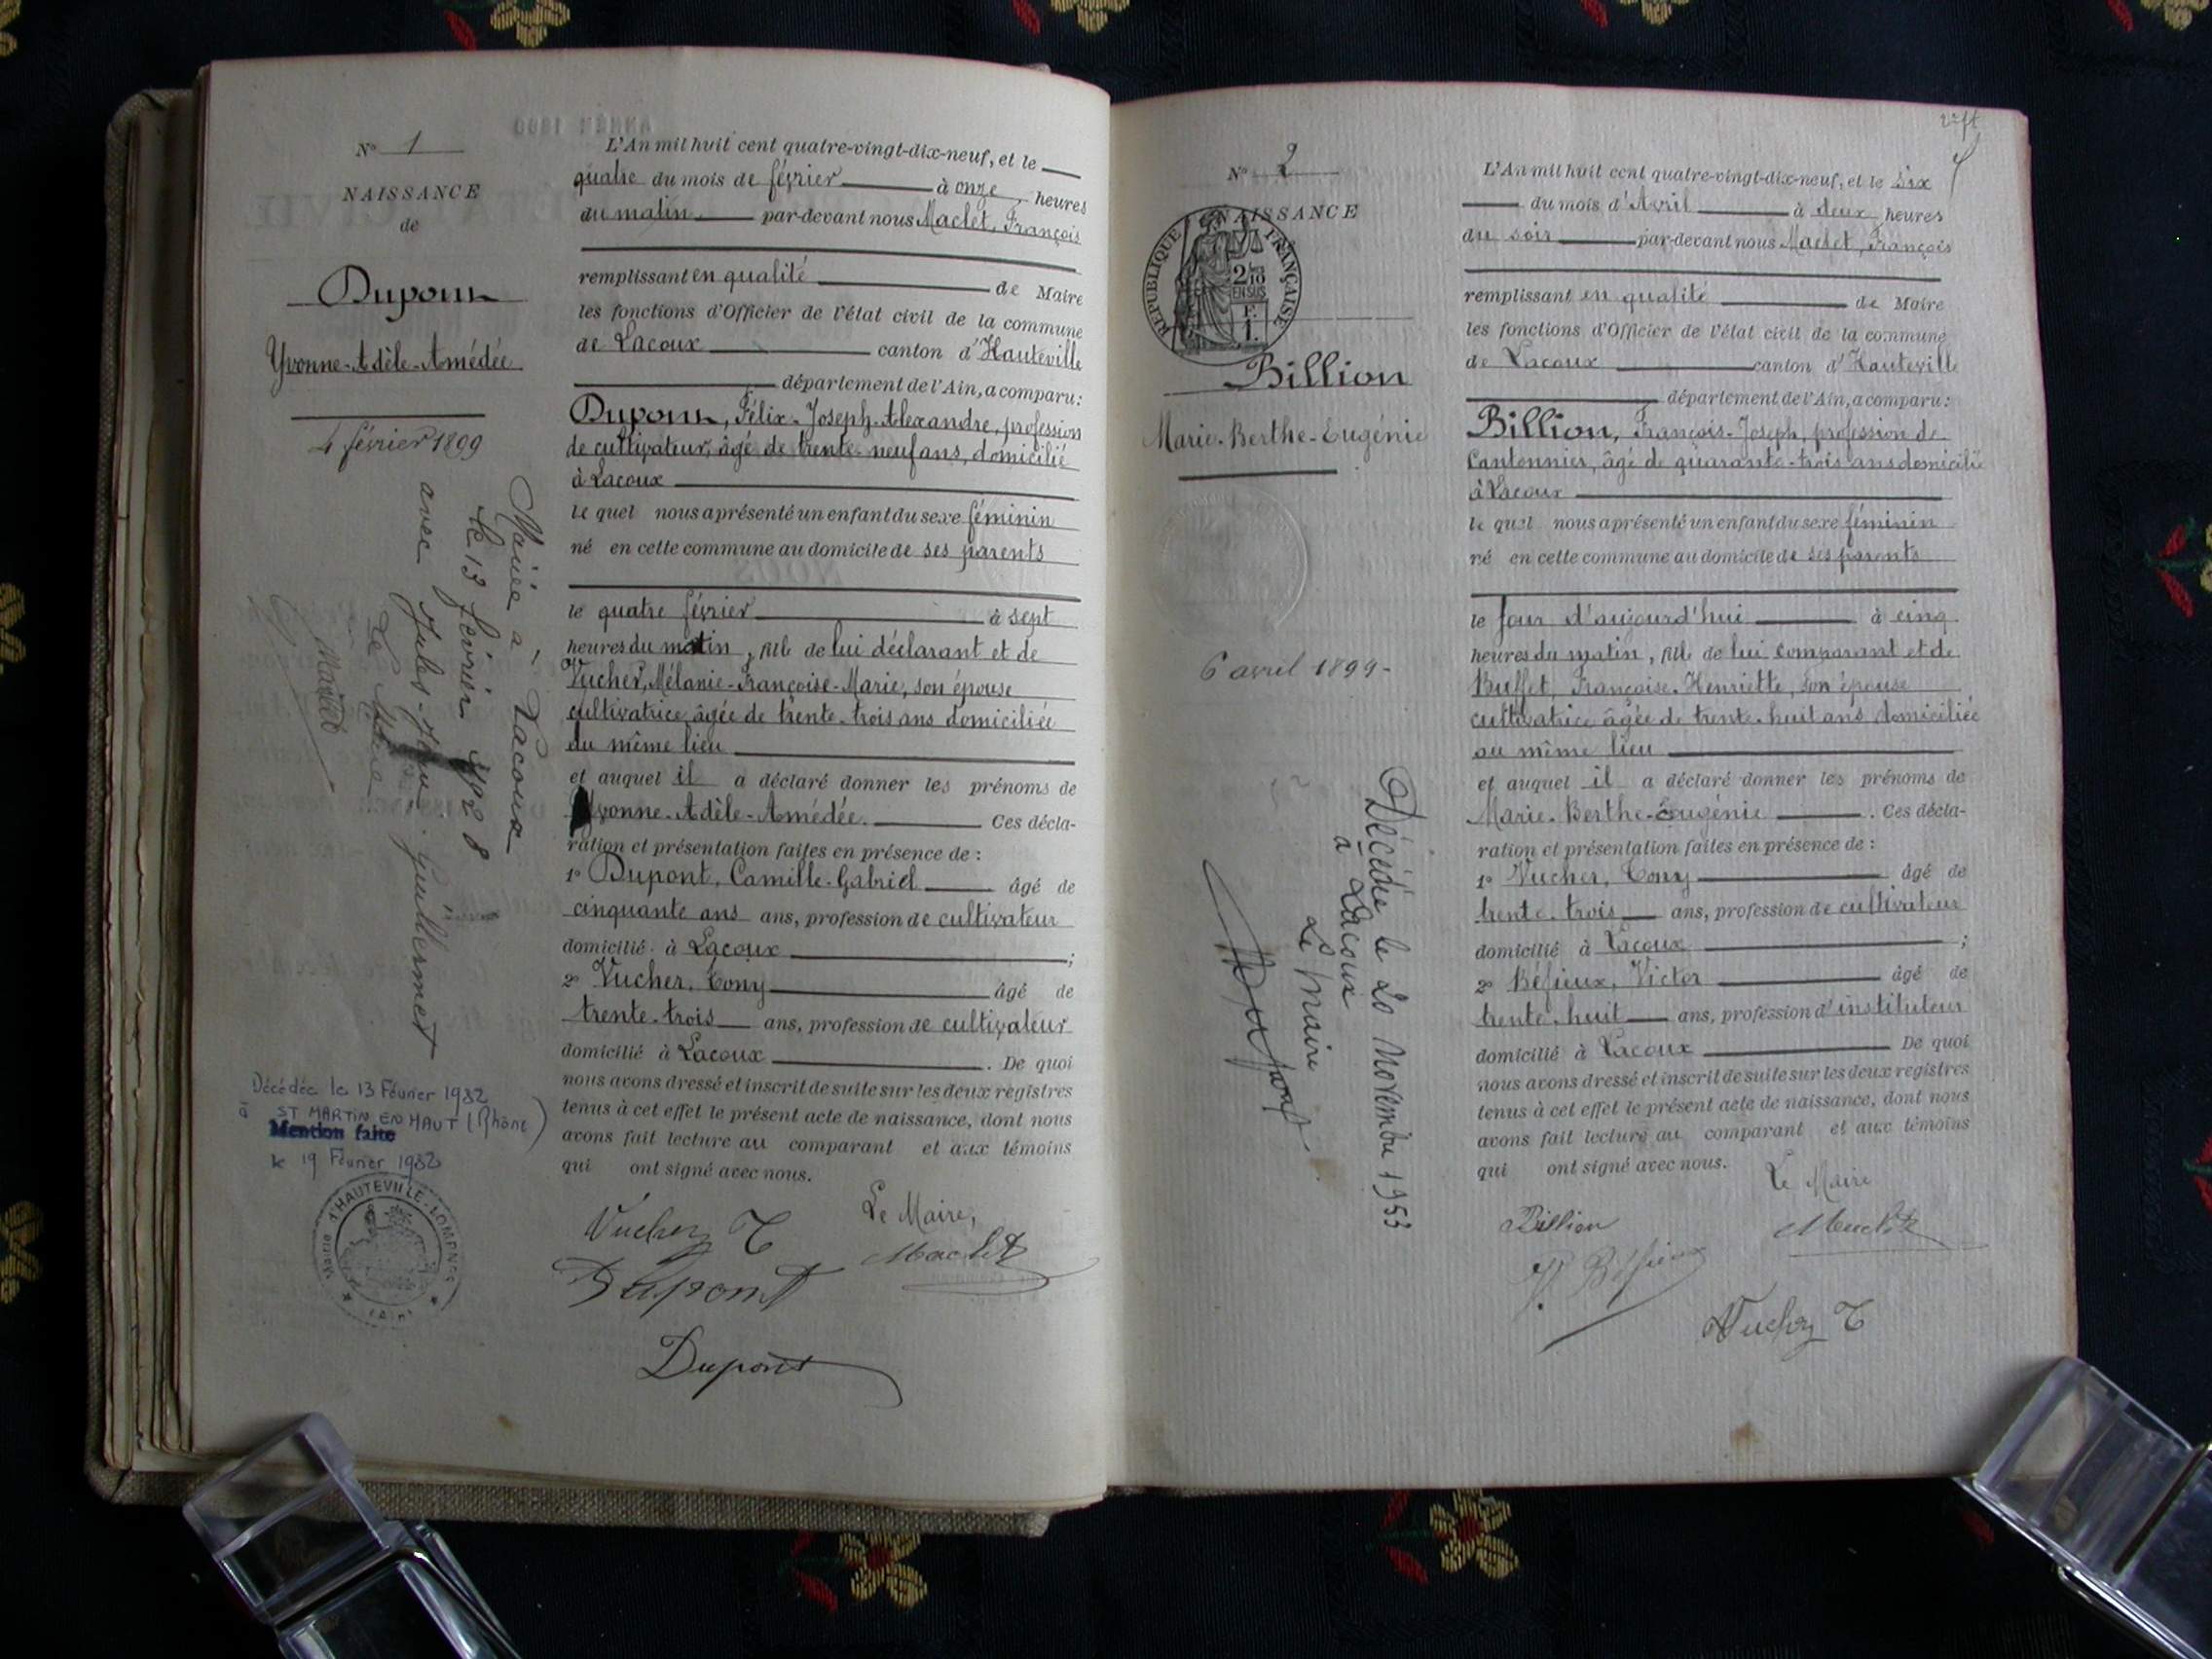 N° 1
NAISSANCE
de
Dupont
Yvonne-Adèle-Amédée
4 février 1899
Mariée à Lacoux
le 13 février 1928
avec Jules-Jean Guillermet
Le Maire
Décédée le 13 Février 1982
à ST MARTIN EN HAUT (Rhône)
Mention faite
le 19 Février 1982
Mairie d'HAUTEVILLE-LOMPNES
(AIN)
L'An mil huit cent quatre-vingt-dix-neuf, et le
quatre du mois de février à onze heures
du matin par-devant nous Maclet, François
remplissant en qualité de Maire
les fonctions d'Officier de l'état civil de la commune
de Lacoux canton d'Hauteville
département de l'Ain, a comparu:
Dupont, Félix-Joseph-Alexandre, profession
de cultivateur, âgé de trente-neuf ans, domicilié
à Lacoux
le quel nous a présenté un enfant du sexe féminin
né en cette commune au domicile de ses parents
le quatre février à sept
heures du matin, fille de lui déclarant et de
Vucher, Mélanie-Françoise-Marie, son épouse
cultivatrice, âgée de trente-trois ans domiciliée
au même lieu
et auquel il a déclaré donner les prénoms de
Yvonne-Adèle-Amédée. Ces décla-
ration et présentation faites en présence de :
1° Dupont, Camille-Gabriel âgé de
cinquante ans ans, profession de cultivateur
domicilié à Lacoux ;
2° Vucher, Tony âgé de
trente-trois ans, profession de cultivateur
domicilié à Lacoux . De quoi
nous avons dressé et inscrit de suite sur les deux registres
tenus à cet effet le présent acte de naissance, dont nous
avons fait lecture au comparant et aux témoins
qui ont signé avec nous.
Vucher T Le Maire,
Dupont Maclet
Dupont
N° 2
NAISSANCE
REPUBLIQUE FRANÇAISE
2/10
EN SUS
F.
1.
Billion
Marie-Berthe-Eugénie
6 avril 1899-
Décédée le 20 Novembre 1953
à Lacoux
Le Maire
L'An mil huit cent quatre-vingt-dix-neuf, et le six
du mois d'Avril à deux heures
du soir par-devant nous Maclet, François
remplissant en qualité de Maire
les fonctions d'Officier de l'état civil de la commune
de Lacoux canton d'Hauteville
département de l'Ain, a comparu:
Billion, François-Joseph, profession de
Cantonnier, âgé de quarante-trois ans domicilié
à Lacoux
le quel nous a présenté un enfant du sexe féminin
né en cette commune au domicile de ses parents
le jour d'aujourd'hui à cinq
heures du matin, fille de lui comparant et de
Buffet, Françoise-Henriette, son épouse
cultivatrice âgée de trente-huit ans domiciliée
au même lieu
et auquel il a déclaré donner les prénoms de
Marie-Berthe-Eugénie . Ces décla-
ration et présentation faites en présence de :
1° Vucher, Tony âgé de
trente-trois ans, profession de cultivateur
domicilié à Lacoux ;
2° Béfieux, Victor âgé de
trente-huit ans, profession d'instituteur
domicilié à Lacoux De quoi
nous avons dressé et inscrit de suite sur les deux registres
tenus à cet effet le présent acte de naissance, dont nous
avons fait lecture au comparant et aux témoins
qui ont signé avec nous.
Le Maire
Billion Maclet
V. Béfieux
Vucher T